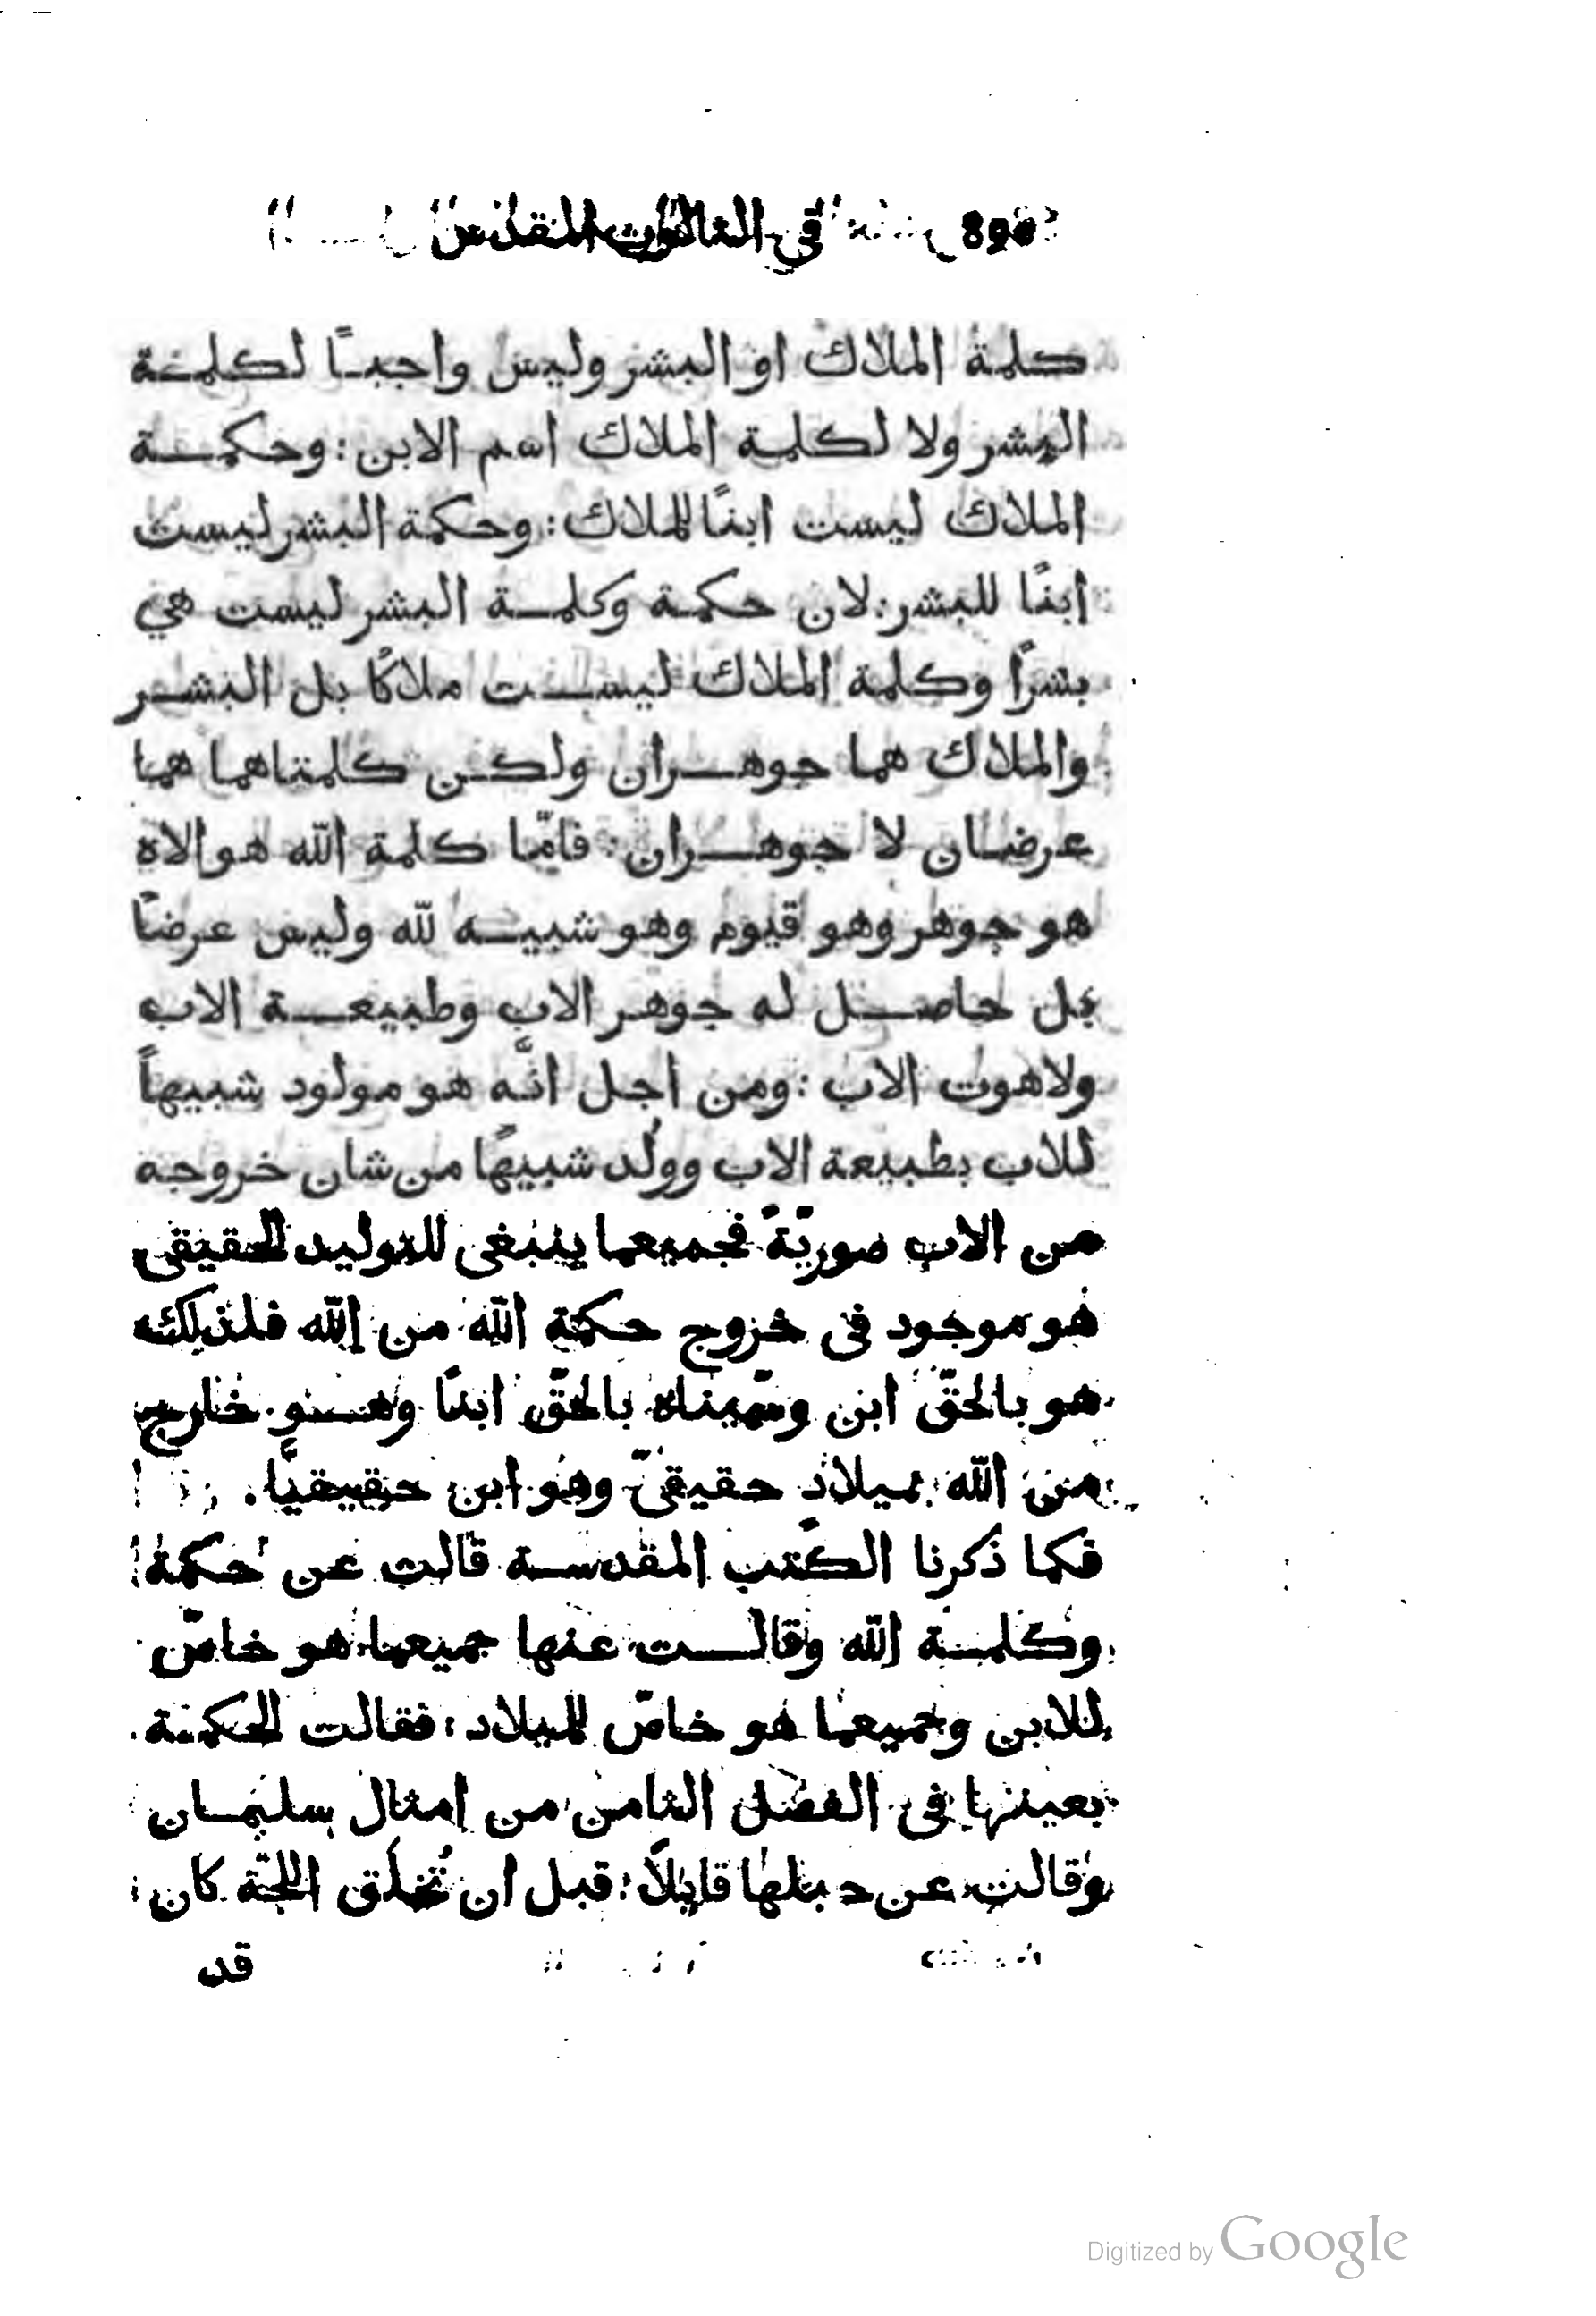 في الثالوث المقدس
كلمة الملاك او البشر وليس واجبًا لكلمة
البشر ولا لكلمة الملاك اسم الابن : وحكمة
الملاك ليست ابنًا للملاك : وحكمة البشر ليست
ابنًا للبشر : لان حكمة وكلمة البشر ليست هي
بشرًا وكلمة الملاك ليست ملاكًا بل البشر
والملاك هما جوهران ولكن كلمتاهما هما
عرضان لا جوهران : فامّا كلمة الله هو الاه
هو جوهر وهو قيوم وهو شبيه لله وليس عرضًا
بل حاصل له جوهر الاب وطبيعة الاب
ولاهوت الاب : ومن اجل انّه هو مولود شبيهاً
للاب بطبيعة الاب وولد شبيهًا من شان خروجه
من الاب صوريّةً فجميعما ينبغى للتوليد الحقيقى
هو موجود فى خروج حكمة الله من الله فلذلك
هو بالحقّ ابن وسّميناه بالحقّ ابنًا وهو خارج
من الله بميلاد حقيقىّ وهو ابن حقيقيًّا .
فكما ذكرنا الكتب المقدسة قالت عن حكمة
وكلمة الله وقالت عنها جميعما هو خاصّ
للابن وجميعما هو خاصّ للميلاد : فقالت الحكمة
بعينها فى الفصل الثامن من امثال سليمان
وقالت عن حبلها قايلاً : قبل ان تُخلَق اللجّة كان
قد
Digitized by Google